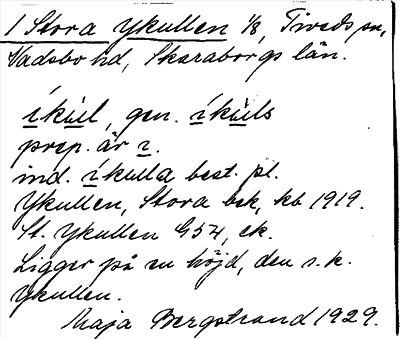 1 Stora Ykullen 1/8, Tiveds sn,
Vadsbo hd, Skaraborgs län.
íkùl, gen. íkùls
prep. är ı.
ind. íkulla best. pl.
Ykullen, Stora bek, kb 1919.
St. Ykullen G54, ek.
Ligger på en höjd, den s.k.
Ykullen.
Maja Bergstrand 1929.